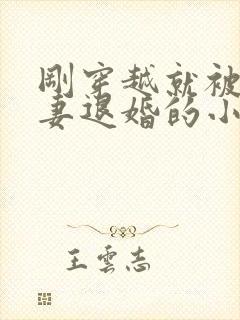 剛穿越就被
妻退婚的小
王雲志